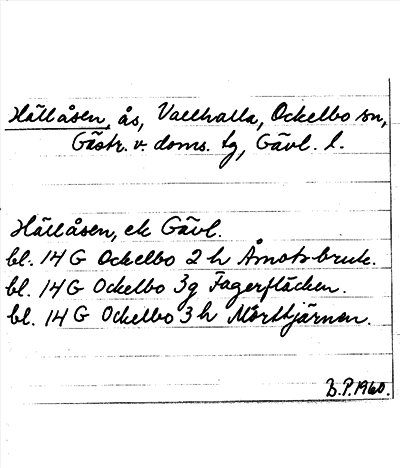 Hällåsen, ås, Vallhalla, Ockelbo sn,
Gästr. v. doms. tg, Gävl. l.
Hällåsen, ek Gävl.
bl. 14 G Ockelbo 2 h Åmotsbruk.
bl. 14 G Ockelbo 3g Fagerfläcken.
bl. 14 G Ockelbo 3 h Mörttjärnen.
B.P. 1960.